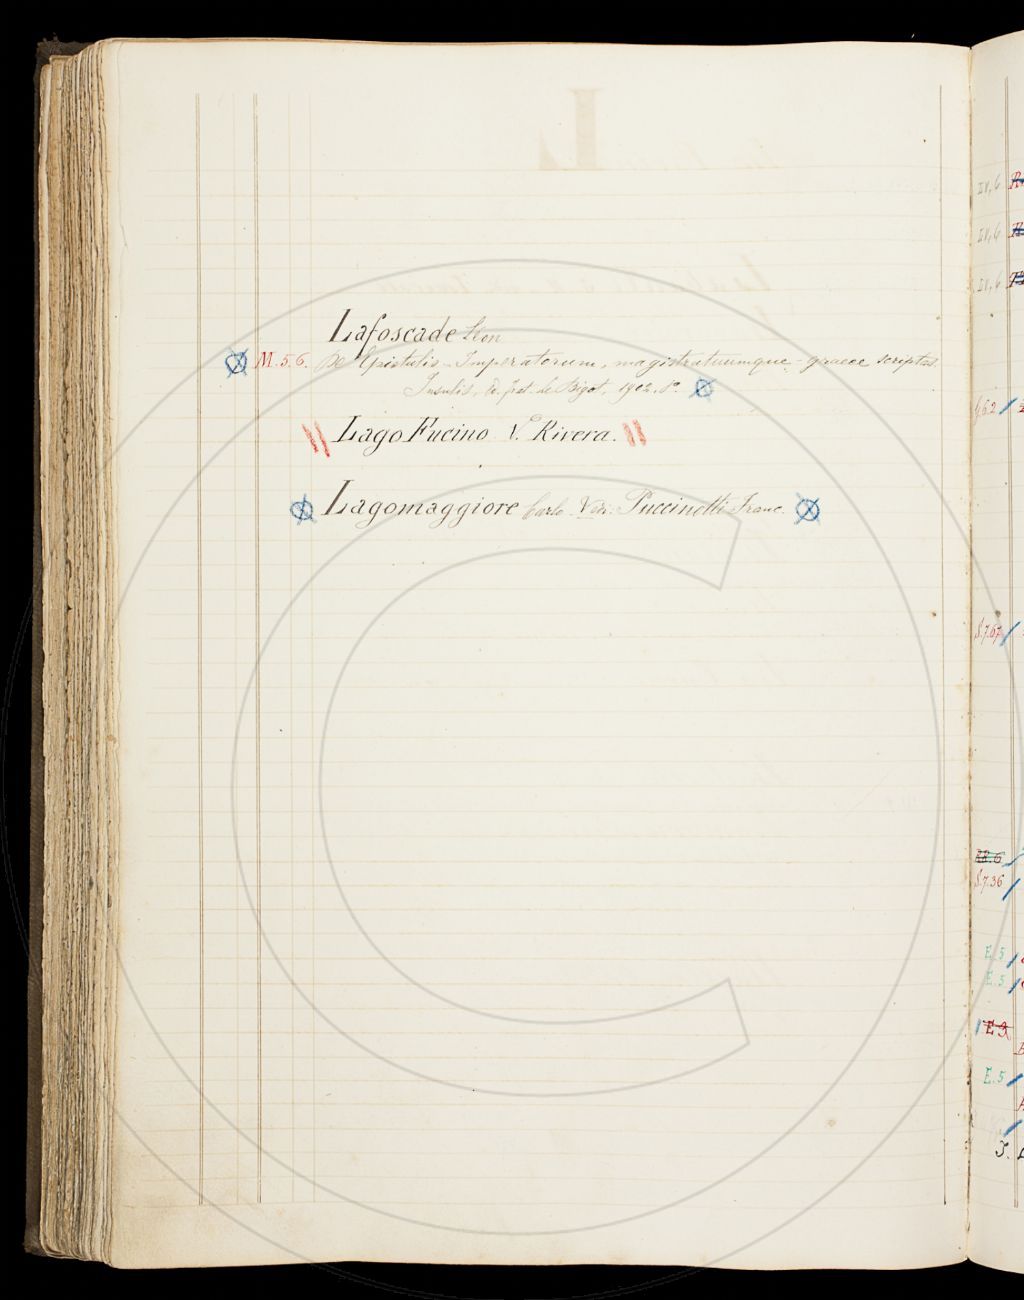 Lafoscade Leon
M. 5. 6. De Epistulis - Imperatorum, magistratuumque - graece scriptis.
Insulis, le Bigot, 1902. 8º
Lago Fucino V. Rivera.
Lagomaggiore Carlo. Vedi: Puccinotti Franc.
IV, 6
IV, 6
IV, 6
S. 7. 67
S. 7. 36
E. 5
E. 5
E. 5